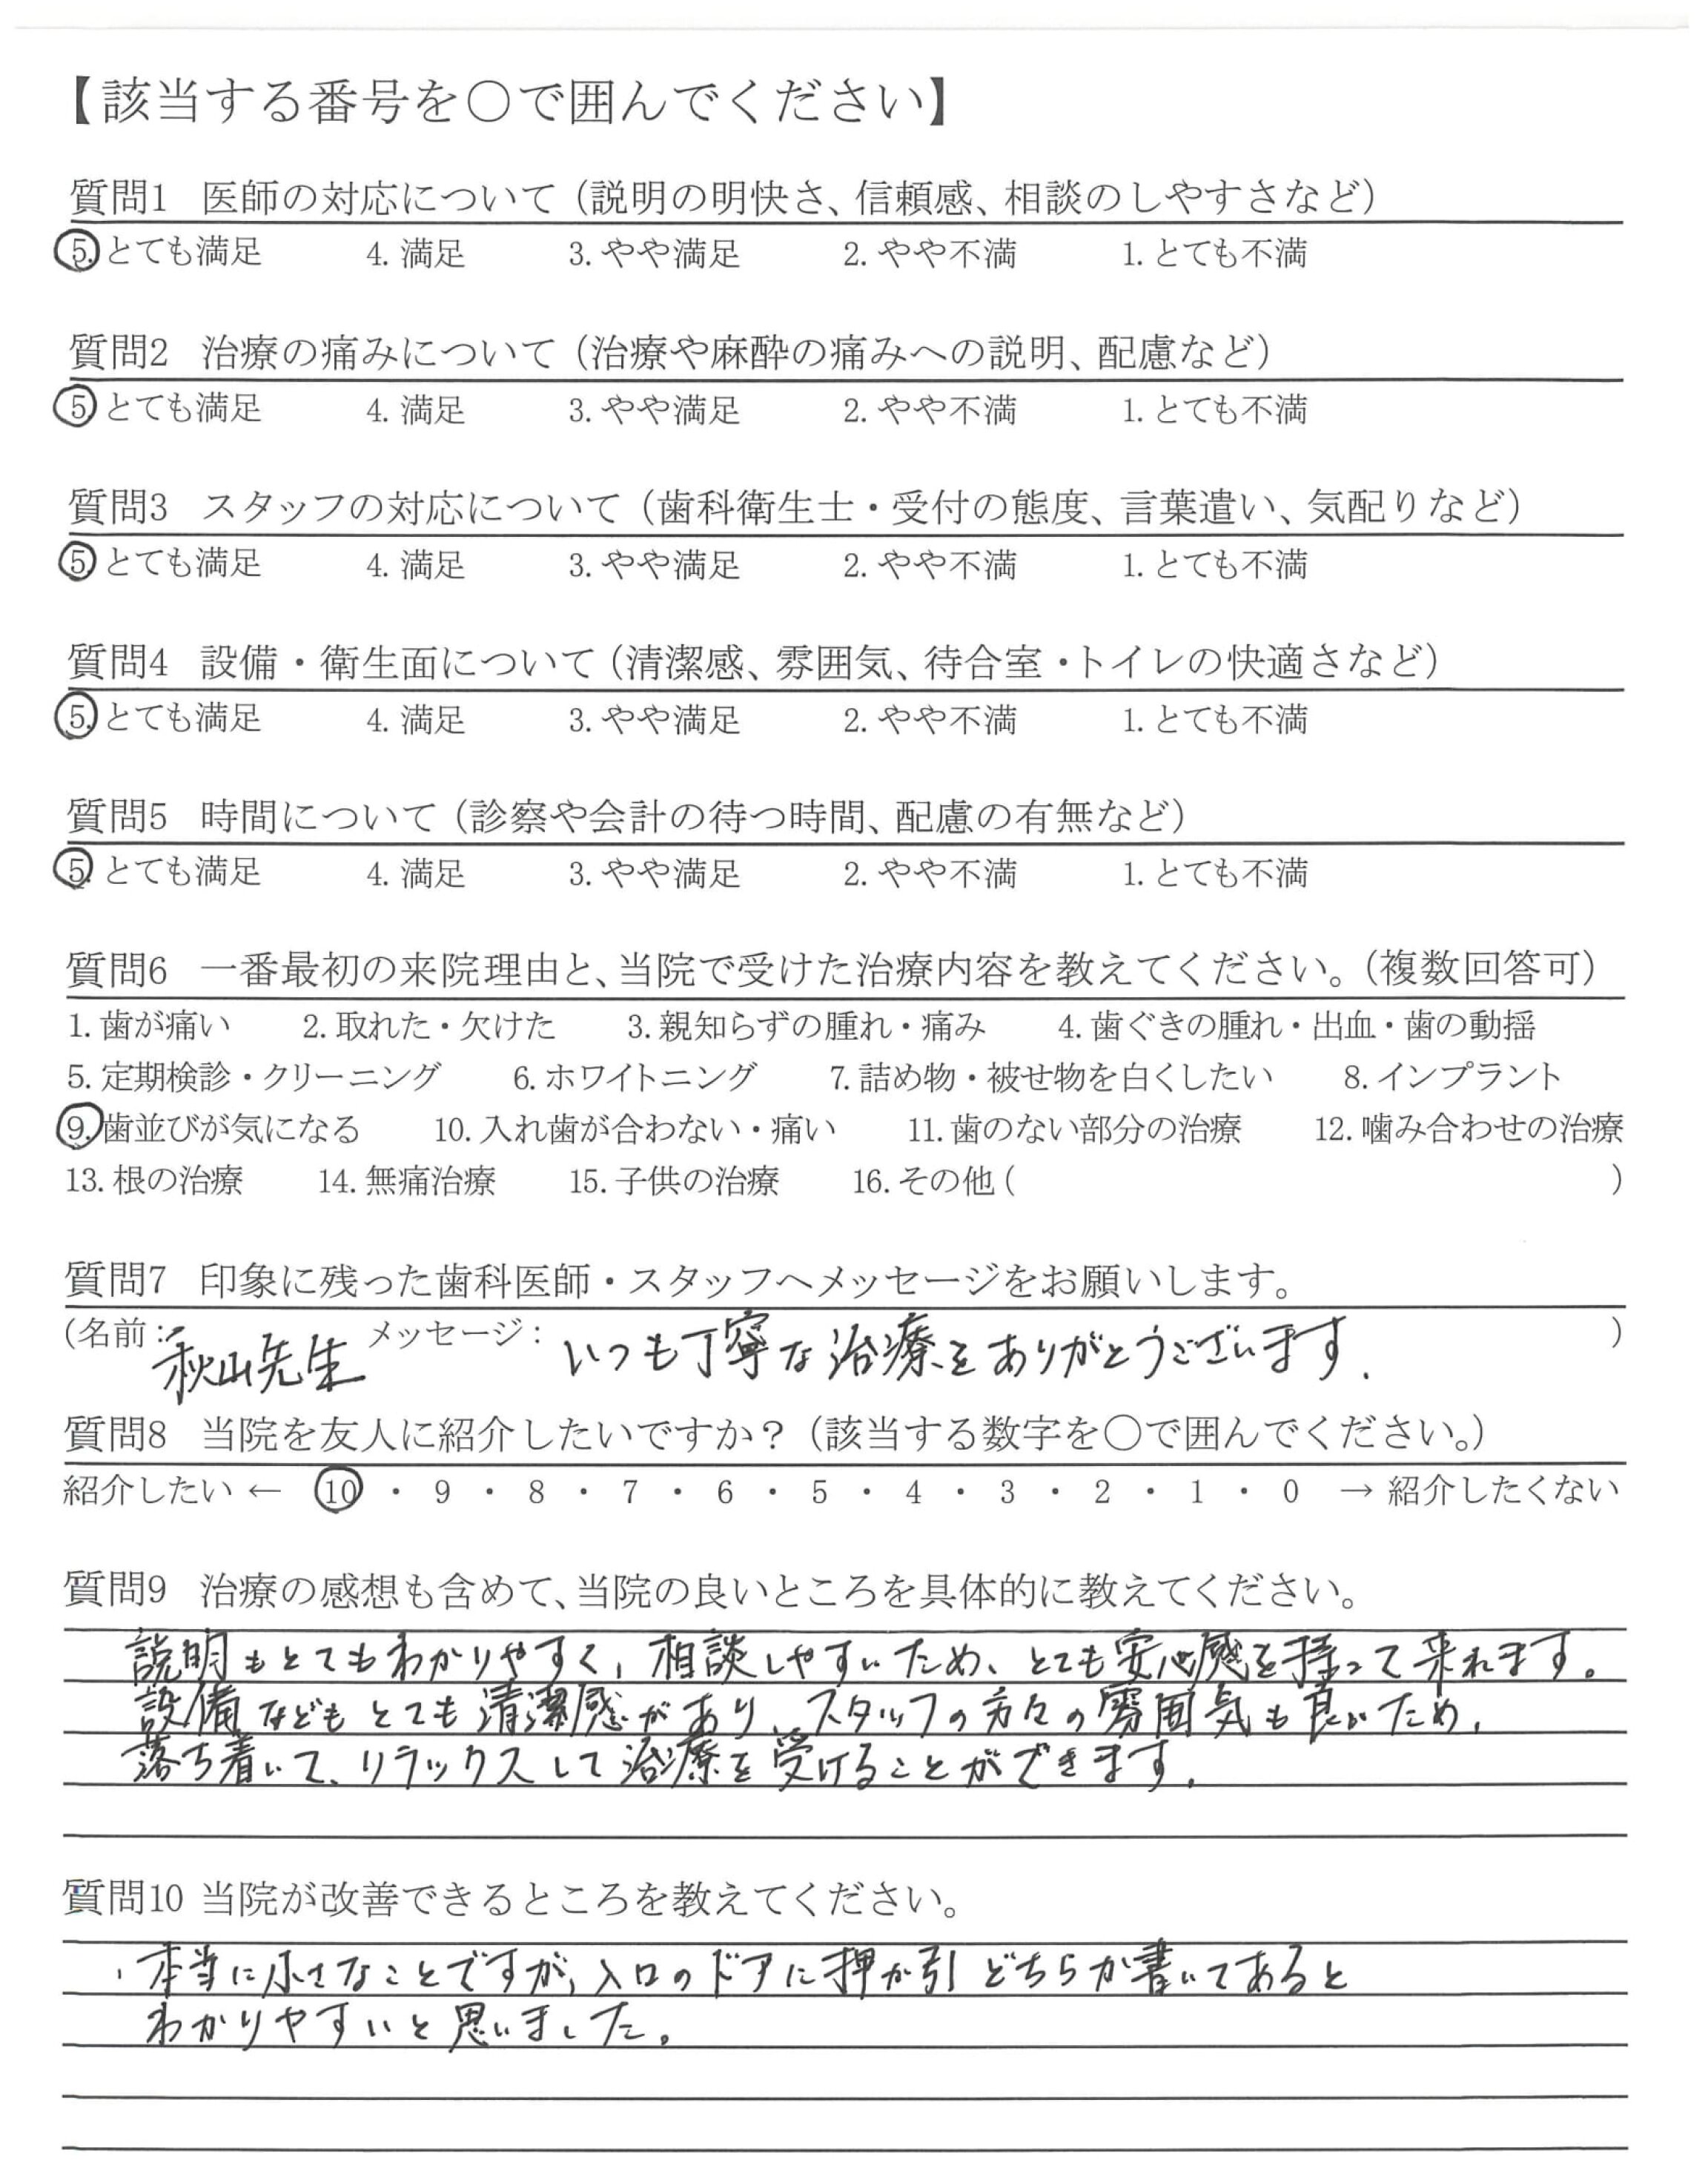 【該当する番号を〇で囲んでください】
質問1 医師の対応について（説明の明快さ、信頼感、相談のしやすさなど）
5. とても満足 4. 満足 3. やや満足 2. やや不満 1. とても不満
質問2 治療の痛みについて（治療や麻酔の痛みへの説明、配慮など）
5. とても満足 4. 満足 3. やや満足 2. やや不満 1. とても不満
質問3 スタッフの対応について（歯科衛生士・受付の態度、言葉遣い、気配りなど）
5. とても満足 4. 満足 3. やや満足 2. やや不満 1. とても不満
質問4 設備・衛生面について（清潔感、雰囲気、待合室・トイレの快適さなど）
5. とても満足 4. 満足 3. やや満足 2. やや不満 1. とても不満
質問5 時間について（診察や会計の待つ時間、配慮の有無など）
5. とても満足 4. 満足 3. やや満足 2. やや不満 1. とても不満
質問6 一番最初の来院理由と、当院で受けた治療内容を教えてください。（複数回答可）
1. 歯が痛い 2. 取れた・欠けた 3. 親知らずの腫れ・痛み 4. 歯ぐきの腫れ・出血・歯の動揺
5. 定期検診・クリーニング 6. ホワイトニング 7. 詰め物・被せ物を白くしたい 8. インプラント
9. 歯並びが気になる 10. 入れ歯が合わない・痛い 11. 歯のない部分の治療 12. 噛み合わせの治療
13. 根の治療 14. 無痛治療 15. 子供の治療 16. その他（ ）
質問7 印象に残った歯科医師・スタッフへメッセージをお願いします。
（名前：秋山先生 メッセージ：いつも丁寧な治療をありがとうございます. ）
質問8 当院を友人に紹介したいですか？（該当する数字を〇で囲んでください。）
紹介したい ← 10 ・ 9 ・ 8 ・ 7 ・ 6 ・ 5 ・ 4 ・ 3 ・ 2 ・ 1 ・ 0 → 紹介したくない
質問9 治療の感想も含めて、当院の良いところを具体的に教えてください。
説明もとてもわかりやすく, 相談しやすいため、とても安心感を持って来れます。
設備などもとても清潔感があり、スタッフの方々の雰囲気も良いため,
落ち着いて、リラックスして治療を受けることができます.
質問10 当院が改善できるところを教えてください。
・本当に小さなことですが, 入口のドアに押か引どちらか書いてあると
わかりやすいと思いました。